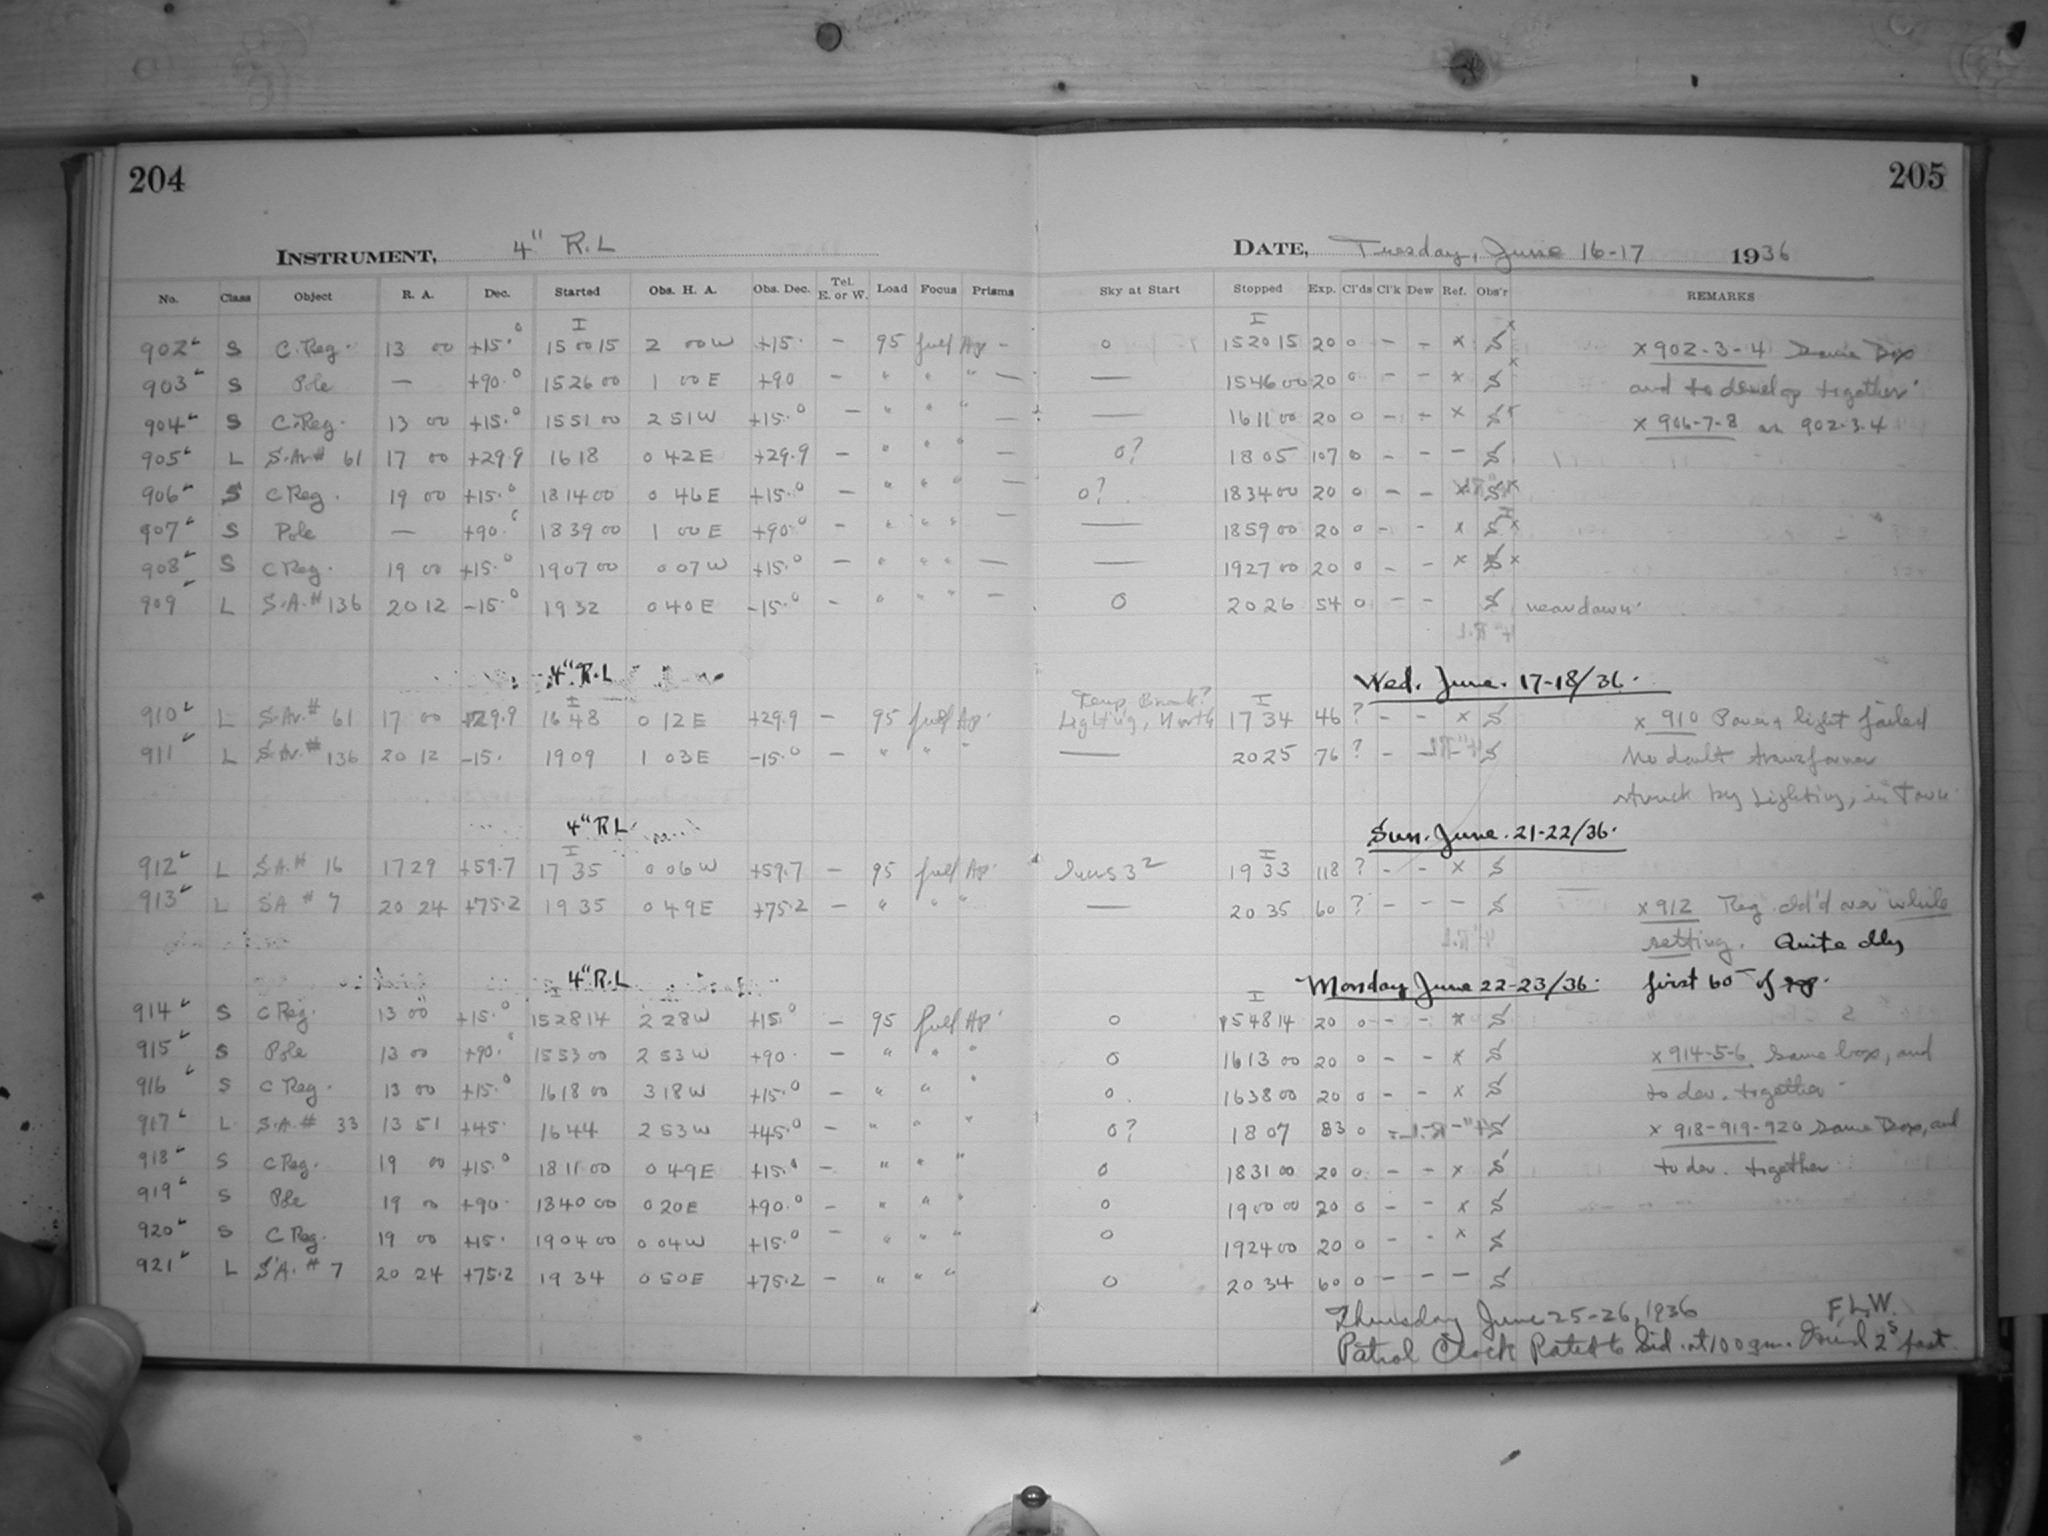 204
205
INSTRUMENT, 4" R.L
DATE, Tuesday, June 16-17 1936
No. Class Object R. A. Dec. Started Obs. H. A. Obs. Dec. Tel. E. or W. Load Focus Prisms Sky at Start Stopped Exp. Cl'ds Cl'k Dew Ref. Obs'r REMARKS
902 S C. Reg. 13 00 +15.0 15 00 15 2 00 W +15. — 95 full Ap — 0 15 20 15 20 0 — — x S x x 902-3-4 Same Box
903 S Pole — +90.0 15 26 00 1 00 E +90 — " " " — — 15 46 00 20 0 — — x S x and to develop together
904 S C. Reg. 13 00 +15.0 15 51 00 2 51 W +15.0 — " " " — — 16 11 00 20 0 — — x S x x 906-7-8 as 902-3-4
905 L S.Ar# 61 17 00 +29.9 16 18 0 42 E +29.9 — " " " — 0? 18 05 107 0 — — — S
906 S C Reg. 19 00 +15.0 18 14 00 0 46 E +15.0 — " " " — 0? 18 34 00 20 0 — — x S x
907 S Pole — +90. 18 39 00 1 00 E +90.0 — " " " — — 18 59 00 20 0 — — x S x
908 S C Reg. 19 00 +15.0 19 07 00 0 07 W +15.0 — " " " — — 19 27 00 20 0 — — x S x
909 L S.A.# 136 20 12 -15.0 19 32 0 40 E -15.0 — " " " — 0 20 26 54 0 — — S near dawn.
4" R.L Wed. June. 17-18/36.
910 L S.Ar.# 61 17 00 +29.9 16 48 0 12 E +29.9 — 95 full Ap. Lighting, North 17 34 46 ? — — x S x 910 Power & light failed
911 L S.Ar.# 136 20 12 -15. 19 09 1 03 E -15.0 — " " " — 20 25 76 ? — — — S No doubt transformer
struck by Lighting, in Town.
4" R L Sun. June. 21-22/36.
912 L S.A.# 16 17 29 +59.7 17 35 0 06 W +59.7 — 95 full Ap. 3 2 19 33 118 ? — — x S
913 L SA # 7 20 24 +75.2 19 35 0 49 E +75.2 — " " " — 20 35 60 ? — — — S x 912 Reg. cld'd over while
setting. Quite cldy
4" R.L Monday June 22-23/36. first 60 of
914 S C Reg. 13 00 +15.0 15 28 14 2 28 W +15.0 — 95 full Ap. 0 15 48 14 20 0 — — x S
915 S Pole 13 00 +90. 15 53 00 2 53 W +90. — " " " 0 16 13 00 20 0 — — x S x 914-5-6. Same box, and
916 S C Reg. 13 00 +15.0 16 18 00 3 18 W +15.0 — " " " 0. 16 38 00 20 0 — — x S to dev. together
917 L S.A.# 33 13 51 +45. 16 44 2 53 W +45.0 — " " " 0? 18 07 83 0 — — — S x 918-919-920 Same Box, and
918 S C Reg. 19 00 +15.0 18 11 00 0 49 E +15.0 — " " " 0 18 31 00 20 0 — — x S to dev. together
919 S Pole 19 00 +90. 18 40 00 0 20 E +90.0 — " " " 0 19 00 00 20 0 — — x S
920 S C Reg. 19 00 +15. 19 04 00 0 04 W +15.0 — " " " 0 19 24 00 20 0 — — x S
921 L S.A.# 7 20 24 +75.2 19 34 0 50 E +75.2 — " " " 0 20 34 60 0 — — — S
Thursday June 25-26, 1936 F.L.W.
Patrol Clock Rated to Sid. at 1 00 gm. Found 2s fast.